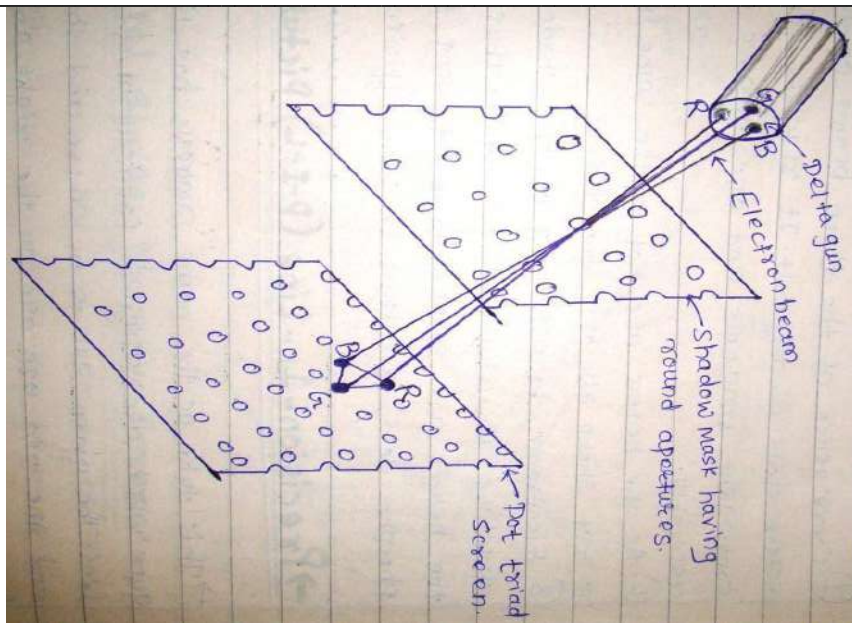 G
R
B
Delta gun
Electron beam
Shadow mask having
round apertures.
B
G
R
Dot triad
screen.